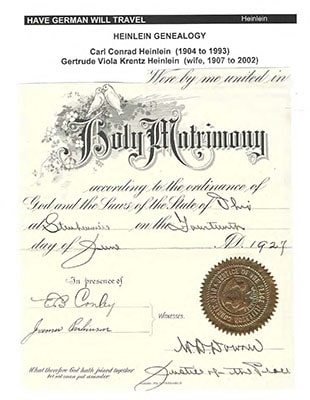 HAVE GERMAN WILL TRAVEL Heinlein
HEINLEIN GENEALOGY
Carl Conrad Heinlein (1904 to 1993)
Gertrude Viola Krentz Heinlein (wife, 1907 to 2002)
Were by me united in
Holy Matrimony
according to the ordinance of
God and the Laws of the State of Ohio
at on the Fourteenth
day of June A.D. 1927
In presence of
E B Conley
Witnesses.
What therefore God hath joined together
let not man put asunder
Justice of the Peace